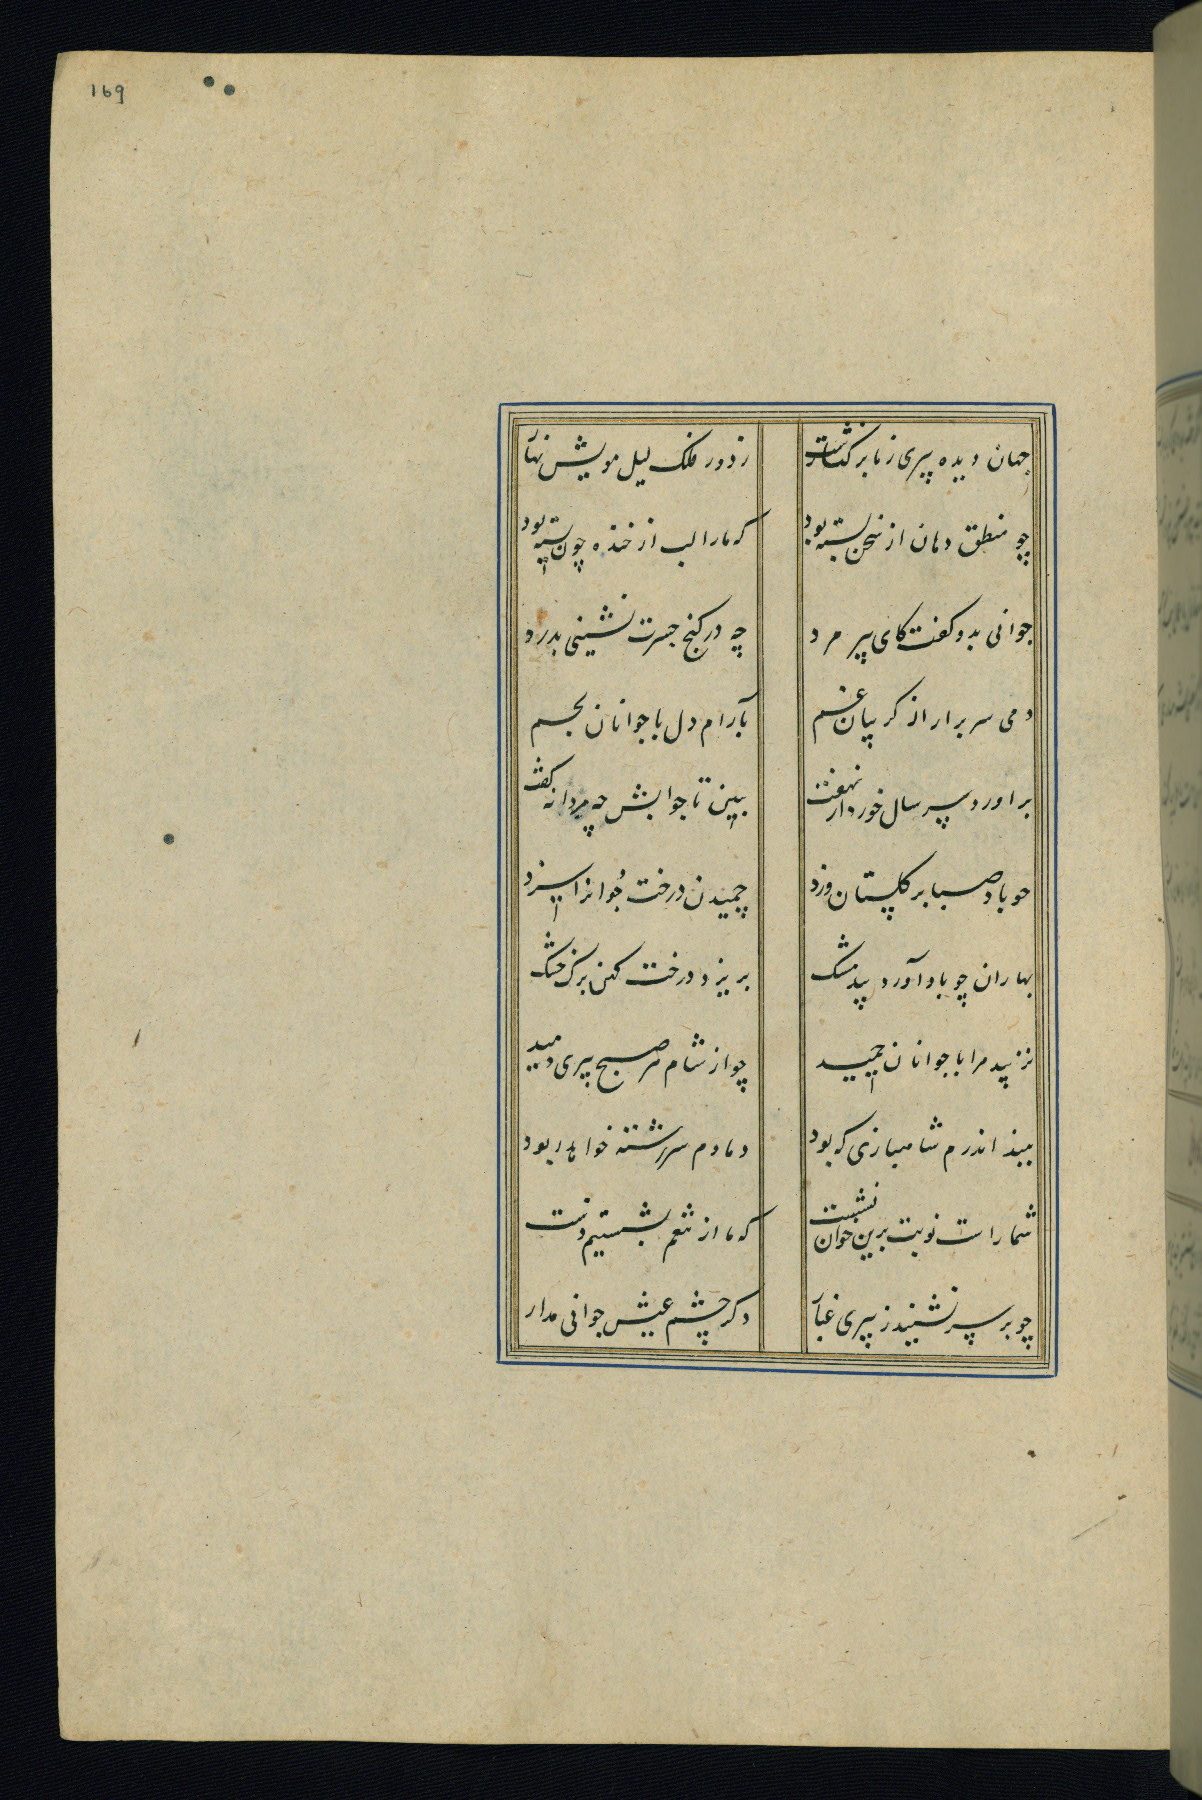 169
جهان دیده پیری ز ما بر کنار ز دور فلک لیل مویش نهار
چو فندق دهان از سخن بسته بود که ما را لب از خنده چون پسته بود
جوانی بدو گفت کای پیر مرد چه در کنج حسرت نشینی بدرد
دمی سر برار از کریبان غم بآرام دل با جوانان بچم
براورد سر سال خورد از نهفت ببین تا جوابش چه مردانه گفت
چو باد صبا بر گلستان وزد چمیدن درخت جوانرا سزد
بهاران چو باد آورد بید مشک بریزد درخت کهن برگ خشک
نزیبد مرا با جوانان چمید چو از شام سر صبح پیری دمید
ببند اندرم شاهبازی که بود دمادم سر رشته خواهد ربود
شما راست نوبت برین خوان نشست که ما از تنعم بشستیم دست
چو بر سر نشیند ز پیری غبار دگر چشم عیش جوانی مدار